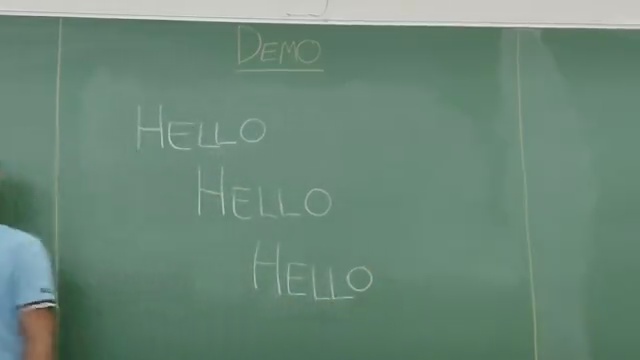 DEMO
HELLO
HELLO
HELLO